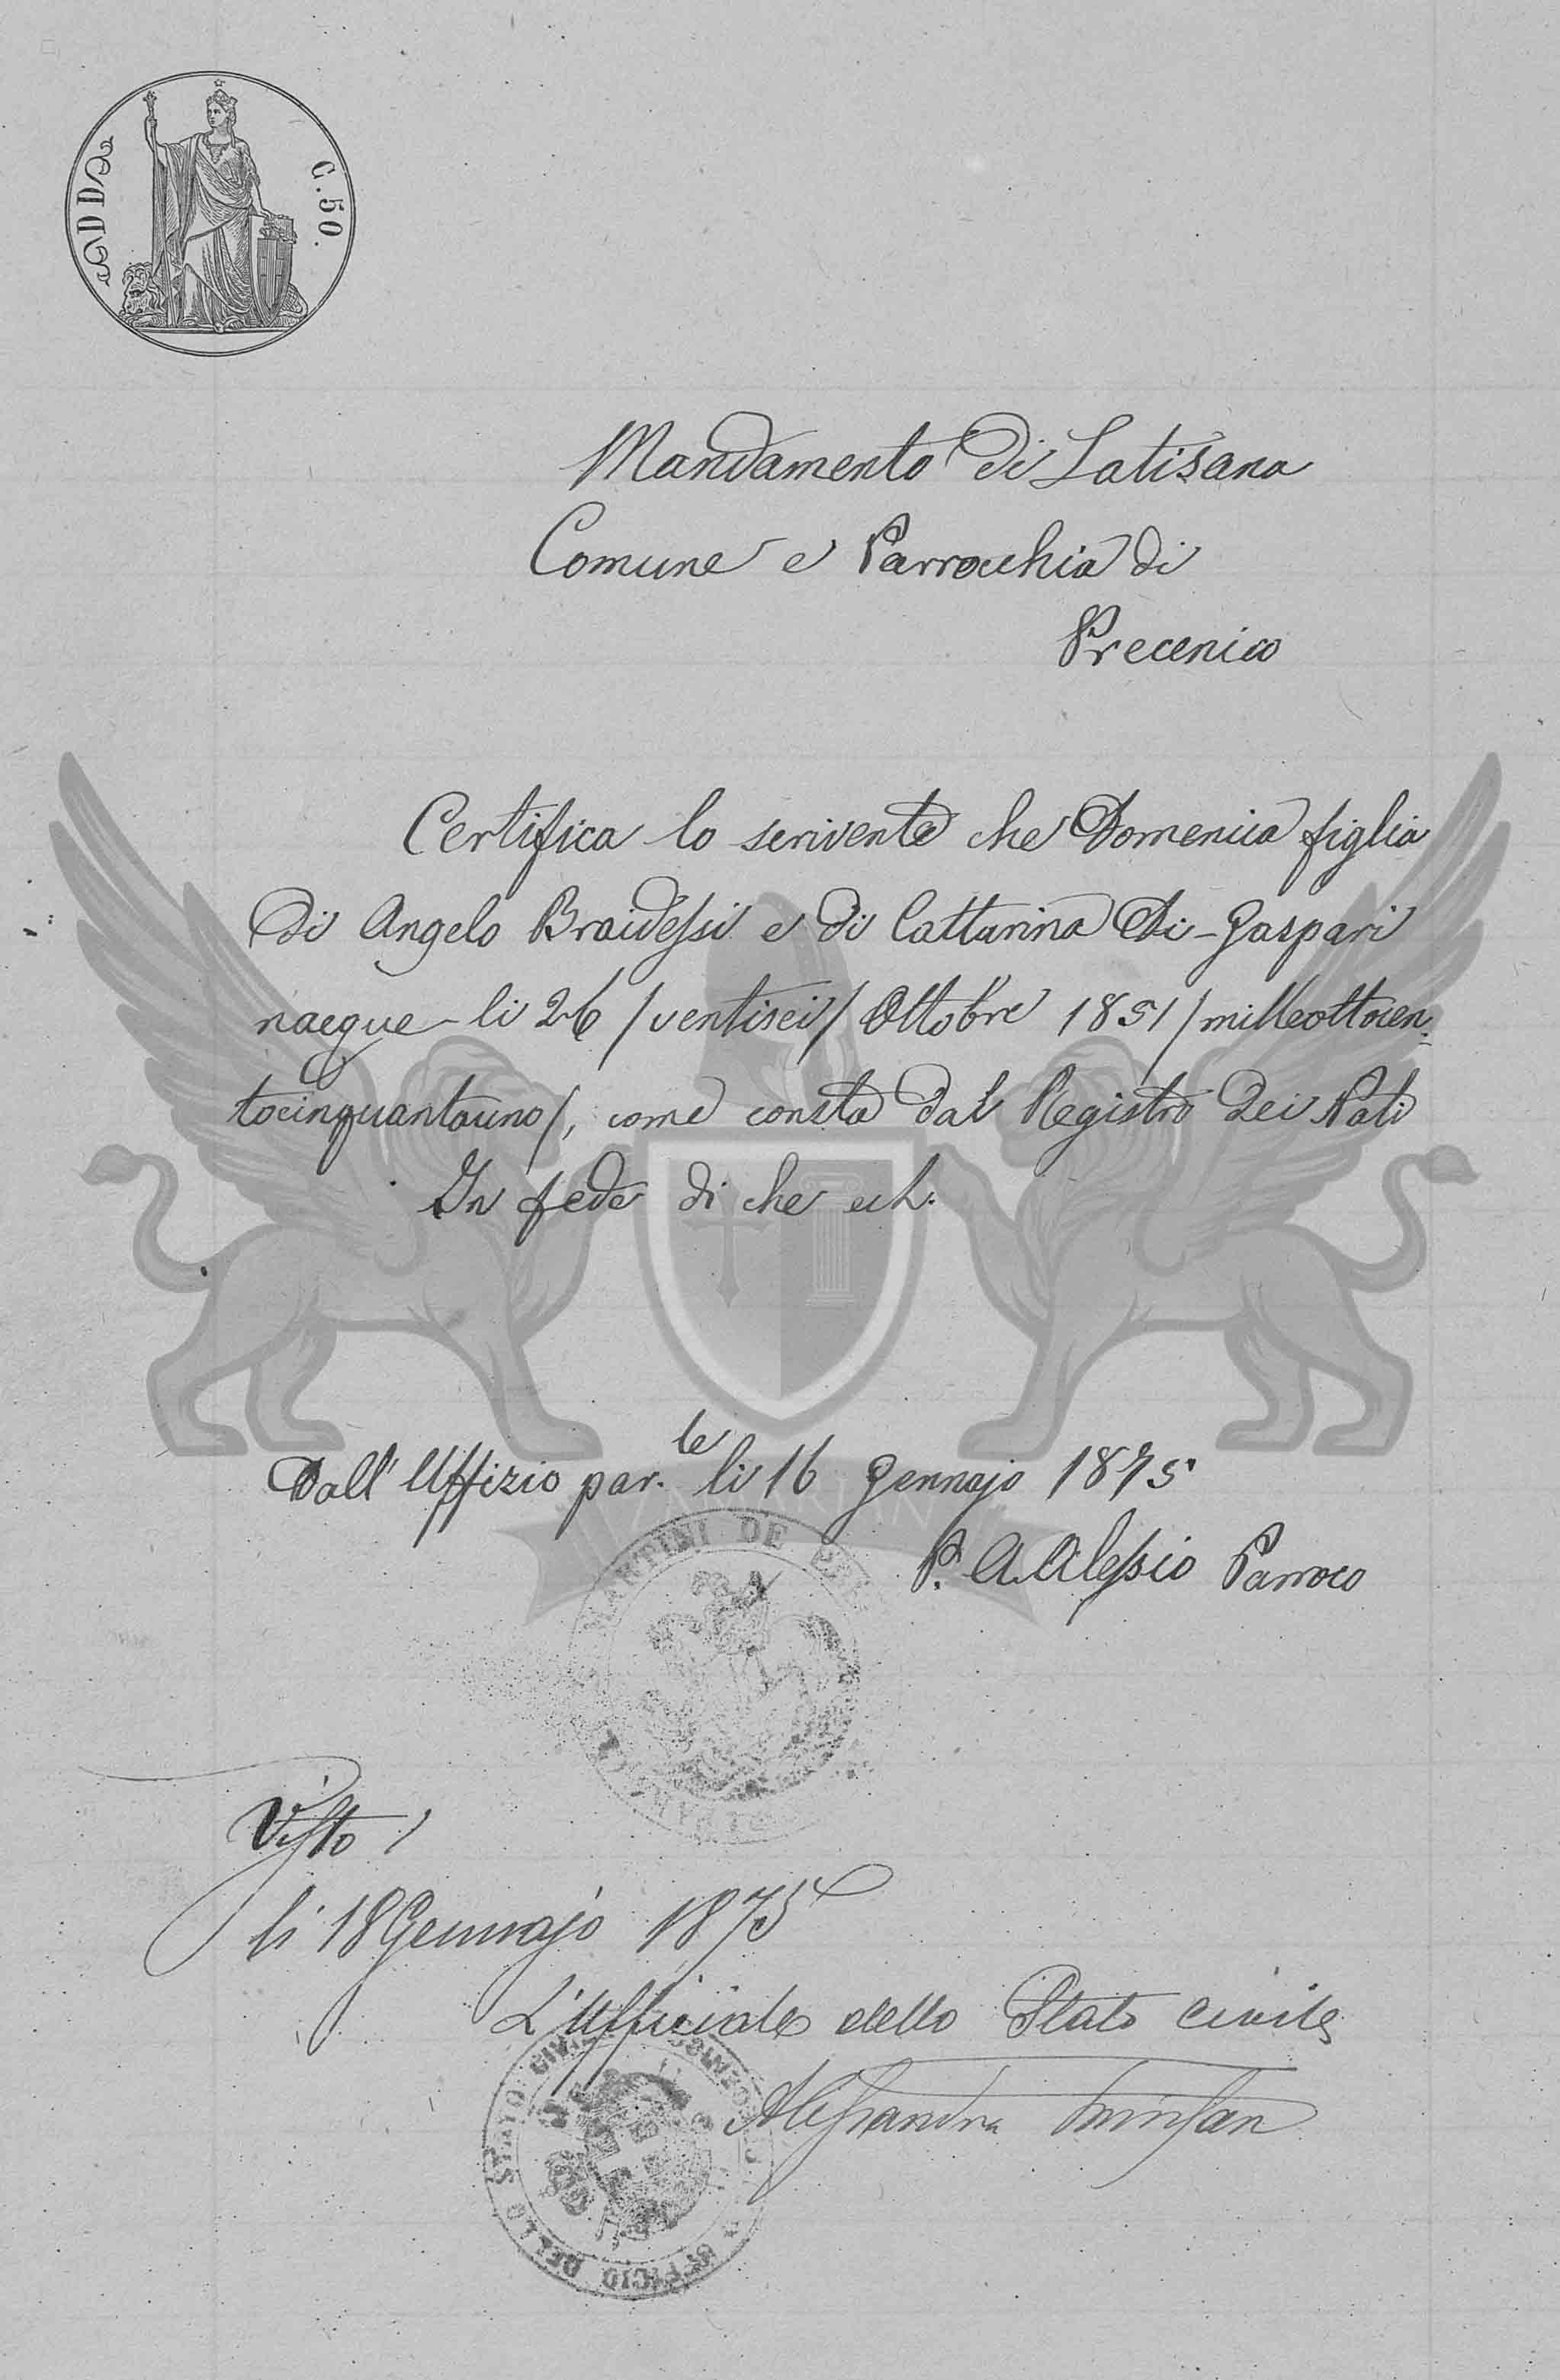 C. 50.
Mandamento di Latisana
Comune e Parrocchia di
Precenico
Certifica lo scrivente che Domenica figlia
di Angelo Braidessi e di Cattarina Di-Gaspari
nacque li 26 /ventisei/ Ottobre 1851 /milleottocen-
tocinquantauno/, come consta dal Registro dei Nati
In fede di che ech.
Dall' Uffizio par.le li 16 Gennajo 1875
P. A. Alessio Parroco
MARTINI DE
Visto
li 18 Gennajo 1875
L'Ufficiale dello Stato Civile
Alessandro
DELLO STATO CIVILE